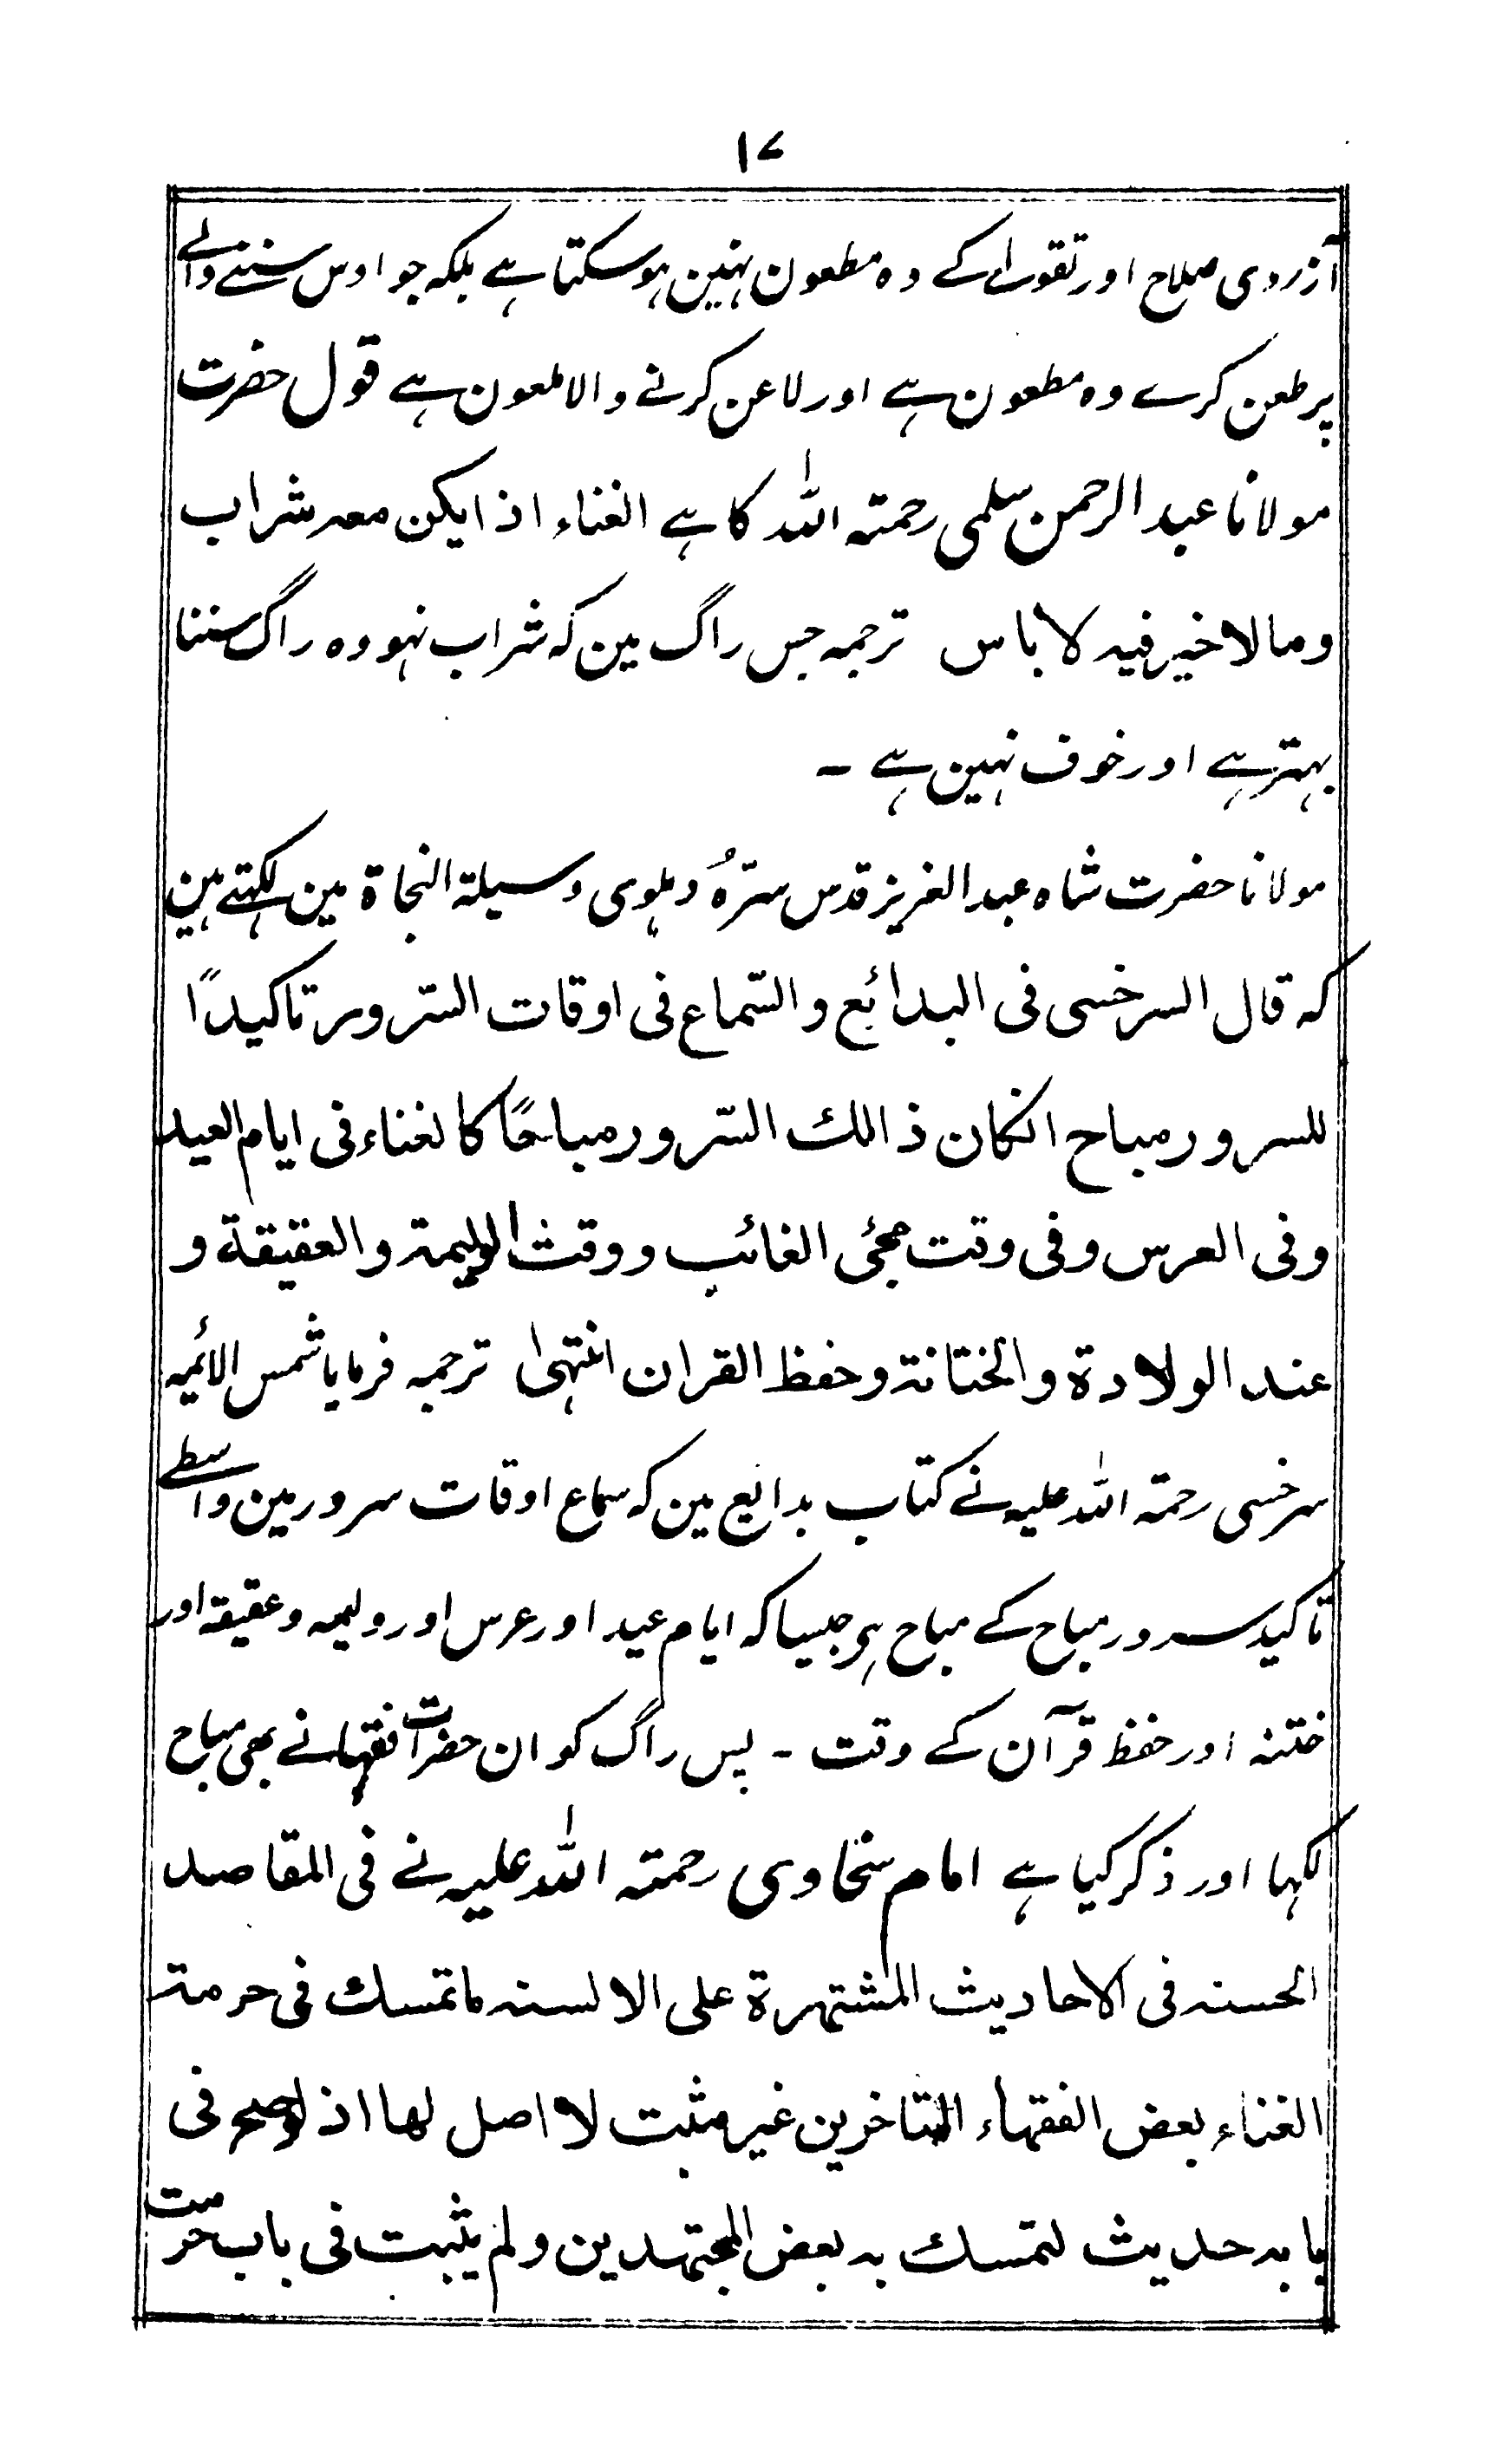 ۱۷
آزروی صلاح اور تقویٰ کے وہ مطعون نہین ہو سکتا ہے بلکہ جو اوس سننے والے
پر طعن کرے وہ مطعون ہے اور لاعن کرنے والا ملعون ہے قول حضرت
مولانا عبد الرحمن سلمی رحمتہ اللہ کا ہے الغناء اذا یکن معہ شراب
وما لا خیر فیہ لا باس ترجمہ جس راگ مین کہ شراب نہو وہ راگ سننا
بہتر ہے اور خوف نہین ہے ۔
مولانا حضرت شاہ عبد العزیز قدس سرّہُ دہلوی وسیلۃ النجاۃ مین لکہتے ہین
کہ قال السرخسی فی البدائع والسّماع فی اوقات السّرور تاکیدًا
للسرور مباح انکان ذالک السّرور مباحًا کالغناء فی ایام العید
وفی العرس وفی وقت مجئ الغائب ووقت الولیمۃ والعقیقۃ و
عند الولادۃ والختانۃ وحفظ القران انتہیٰ ترجمہ فرمایا شمس الائمیہ
سرخسی رحمتہ اللہ علیہ نے کتاب بدایع مین کہ سماع اوقات سرور مین واسطے
تاکید سرور مباح کے مباح ہی جیسا کہ ایام عید اور عرس اور ولیمہ وعقیقہ اور
ختنہ اور حفظ قرآن کے وقت ۔ پس راگ کو ان حضرات فقہا نے بھی مباح
لکہا اور ذکر کیا ہے امام سخاوی رحمتہ اللہ علیہ نے فی المقاصد
الحسنہ فی الاحادیث المشتہرۃ علی الالسنہ ما تمسک فی حرمۃ
الغناء بعض الفقہاء المتاخرین غیر مثبت لا اصل لھا اذ لوصح فی
بابہ حدیث لتمسک بہ بعض المجتہدین ولم یثبت فی باب حرمت